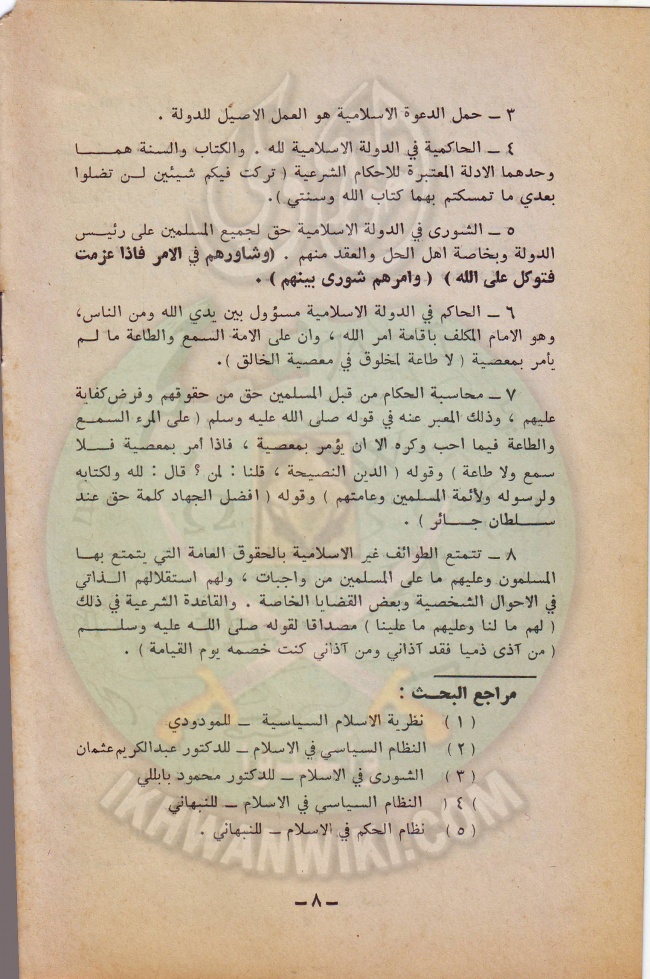 ٣ ــ حمل الدعوة الاسلامية هو العمل الاصيل للدولة .
٤ ــ الحاكمية في الدولة الاسلامية لله . والكتاب والسنة همـــا
وحدهما الادلة المعتبرة للاحكام الشرعية ( تركت فيكم شيئين لـن تضلوا
بعدي ما تمسكتم بهما كتاب الله وسنتي ) .
٥ ــ الشورى في الدولة الاسلامية حق لجميع المسلمين على رئيـس
الدولة وبخاصة اهل الحل والعقد منهم . (وشاورهم في الامر فاذا عزمت
فتوكل على الله ) ( وامرهم شورى بينهم ) .
٦ ــ الحاكم في الدولة الاسلامية مسؤول بين يدي الله ومن الناس،
وهو الامام المكلف باقامة امر الله ، وان على الامة السمع والطاعة ما لـم
يأمر بمعصية ( لا طاعة لمخلوق في معصية الخالق ) .
٧ ــ محاسبة الحكام من قبل المسلمين حق من حقوقهم وفرض كفاية
عليهم ، وذلك المعبر عنه في قوله صلى الله عليه وسلم ( على المرء السمـع
والطاعة فيما احب وكره الا ان يؤمر بمعصية ، فاذا أمر بمعصية فـــلا
سمع ولا طاعة ) وقوله ( الدين النصيحة ، قلنا : لمن ؟ قال : لله ولكتابه
ولرسوله ولأئمة المسلمين وعامتهم ) وقوله ( افضل الجهاد كلمة حق عند
ســـلطان جــائر ) .
٨ ــ تتمتع الطوائف غير الاسلامية بالحقوق العامة التي يتمتع بهـا
المسلمون وعليهم ما على المسلمين من واجبات ، ولهم استقلالهم الـذاتي
في الاحوال الشخصية وبعض القضايا الخاصة . والقاعدة الشرعية في ذلك
( لهم ما لنا وعليهم ما علينا ) مصداقا لقوله صلى اللـه عليه وسلـــم
( من آذى ذميا فقد آذاني ومن آذاني كنت خصمه يوم القيامة ) .
مراجع البحث :
( ١ ) نظرية الاسلام السياسية ــ للمودودي
( ٢ ) النظام السياسي في الاسلام ــ للدكتور عبدالكريم عثمان
( ٣ ) الشورى في الاسلام ــ للدكتور محمود بابللي
( ٤ ) النظام السياسي في الاسلام ــ للنبهاني
( ٥ ) نظام الحكم في الاسلام ــ للنبهاني .
IKHWANWIKI.COM
ــ ٨ ــ